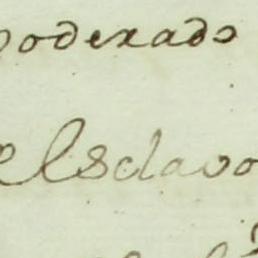 poderado
el Esclavo